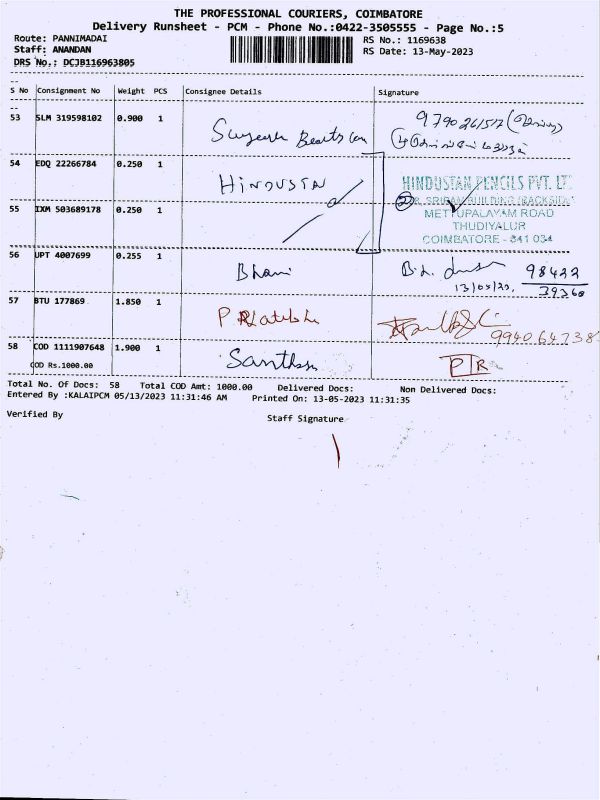 THE PROFESSIONAL COURIERS, COIMBATORE
Delivery Runsheet - PCM - Phone No.:0422-3505555 - Page No.:5
Route: PANNIMADAI
RS No.: 1169638
Staff: ANANDAN
RS Date: 13-May-2023
DRS No.: DCJB116963805
S No Consignment No Weight PCS Consignee Details Signature
53 SLM 319598102 0.900 1
54 EDQ 22266784 0.250 1 HINDUSTAN
HINDUSTAN PENCILS PVT. LT
55 IXM 503689178 0.250 1
METTUPALAYAM ROAD
THUDIYALUR
COIMBATORE - 641 034
56 UPT 4007699 0.255 1 Bhani 98422
13/05/23, 39360
57 BTU 177869 1.850 1
994064738
58 COD 1111907648 1.900 1 PTR
COD Rs.1000.00
Total No. Of Docs: 58 Total COD Amt: 1000.00 Delivered Docs: Non Delivered Docs:
Entered By :KALAIPCM 05/13/2023 11:31:46 AM Printed On: 13-05-2023 11:31:35
Verified By Staff Signature